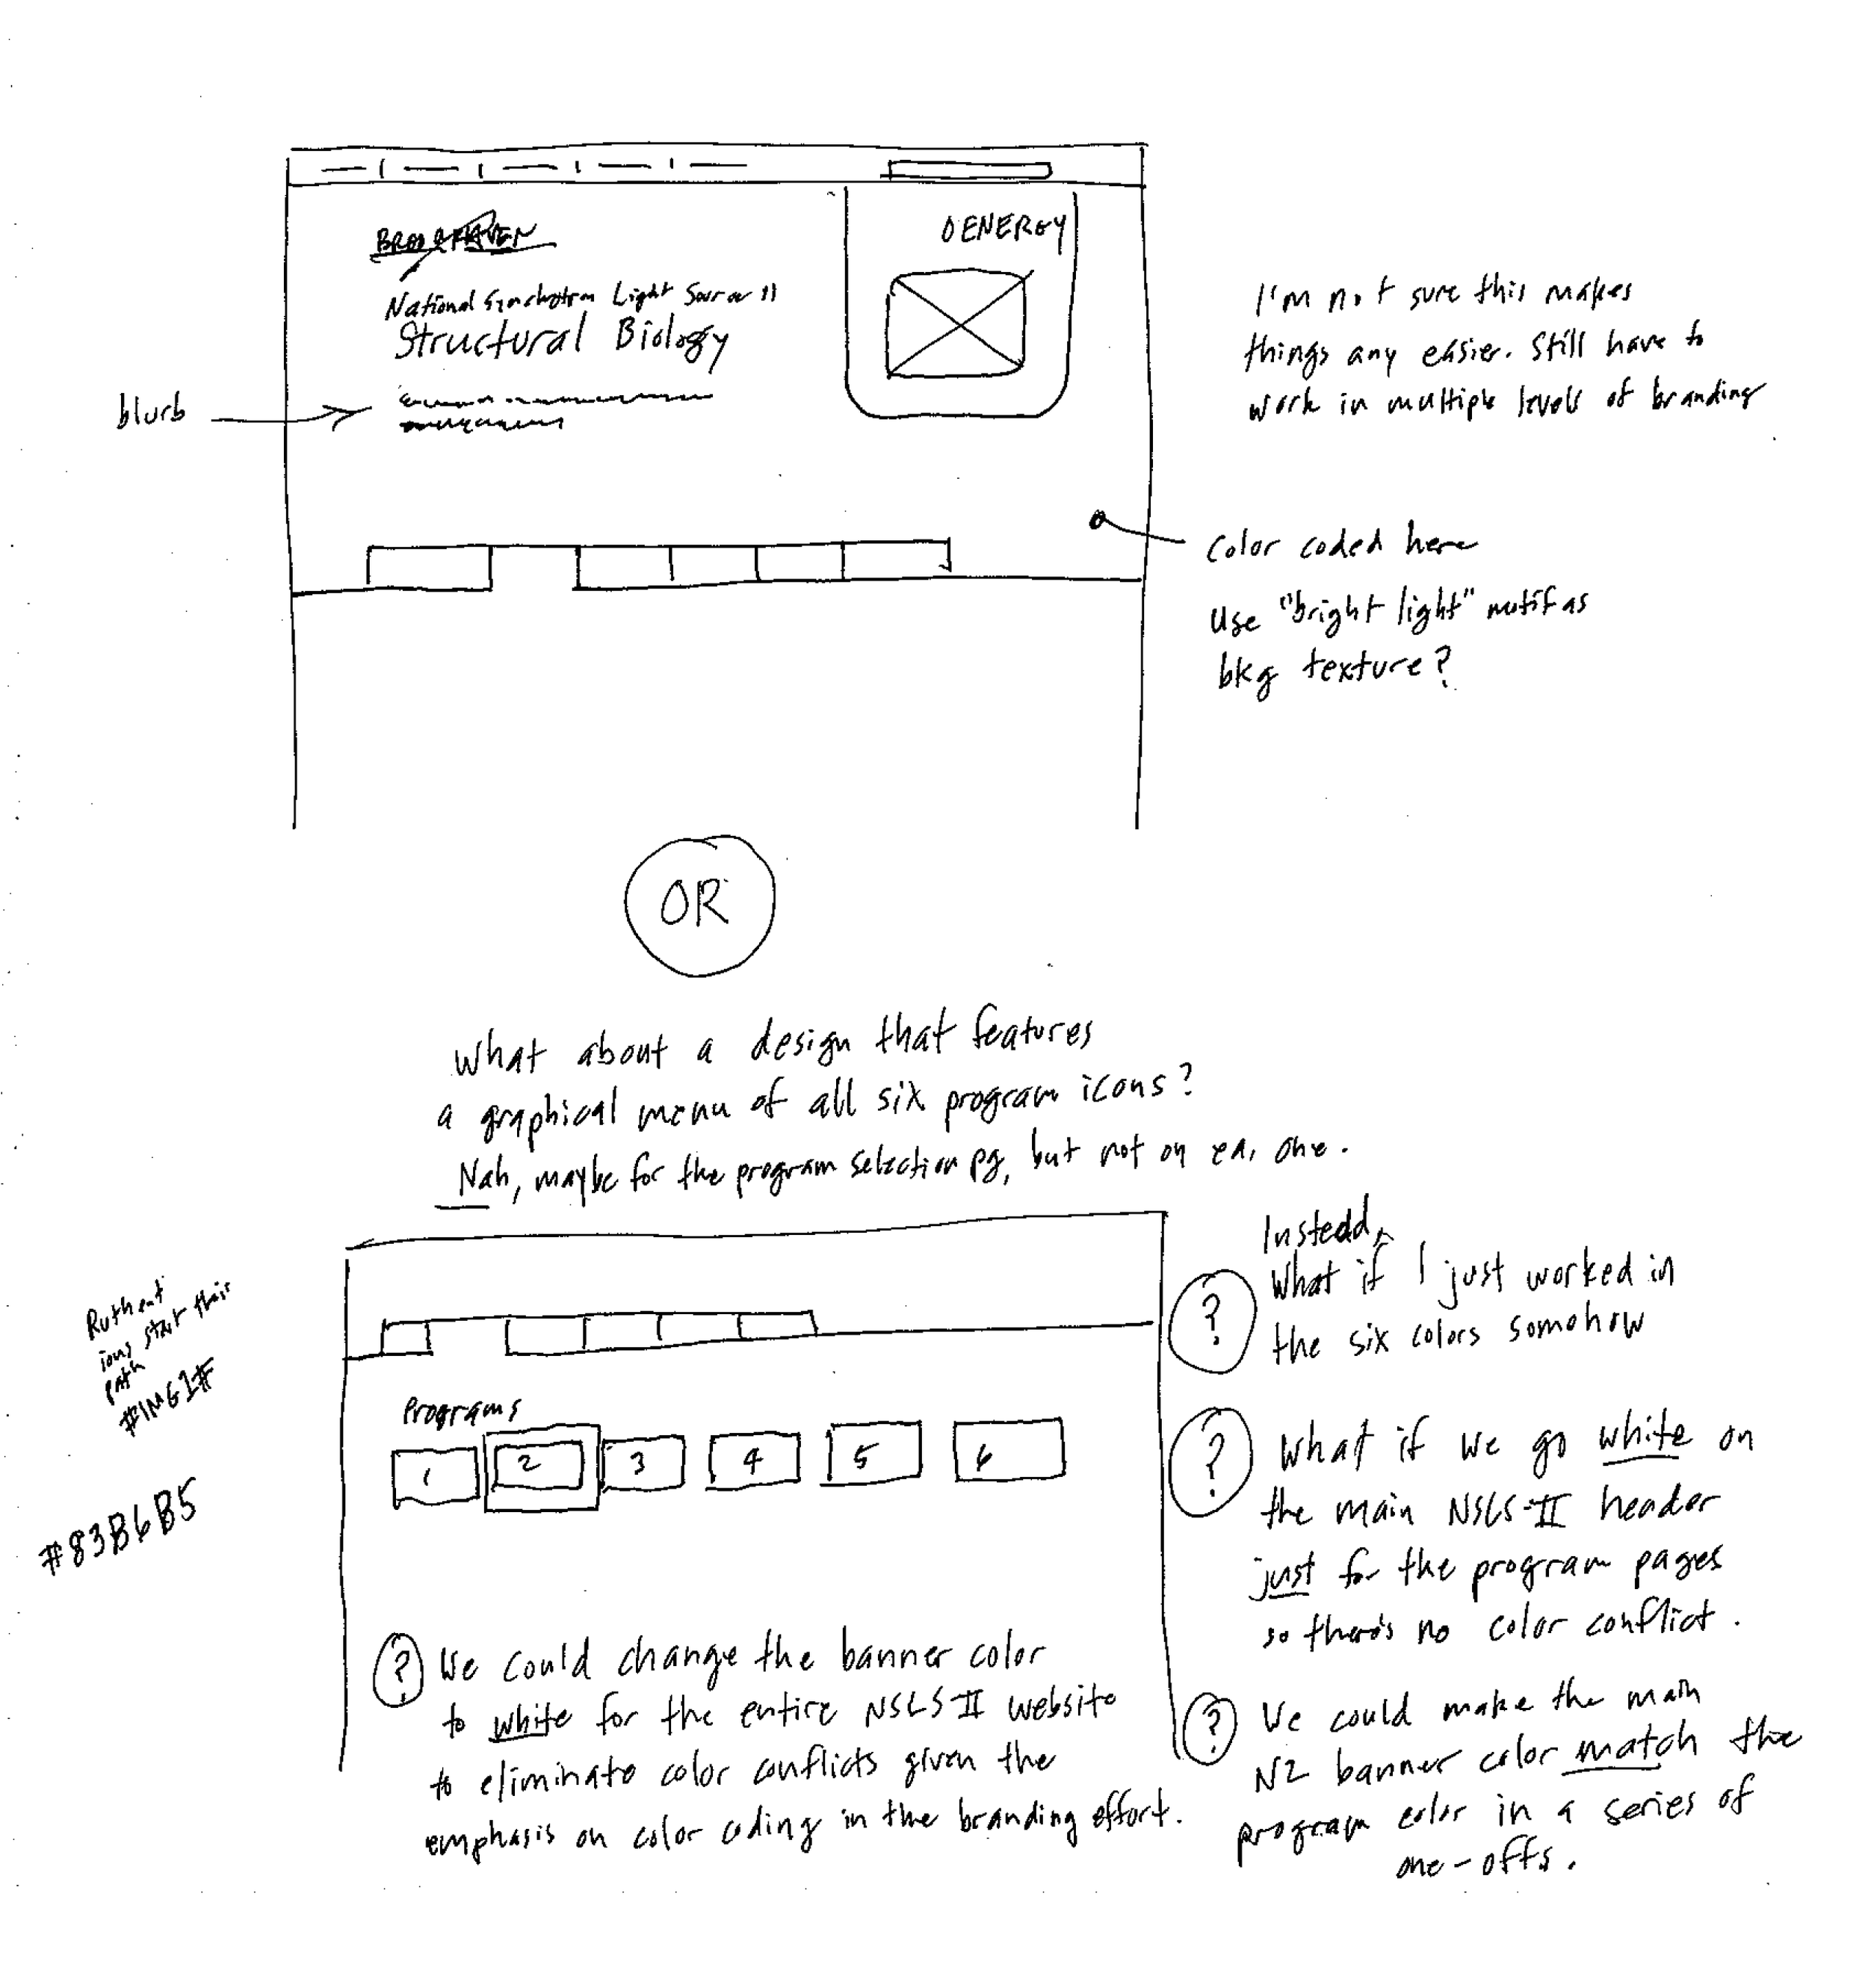 BROOKHAVEN
National Synchrotron Light Source II
Structural Biology
ENERGY
blurb
I'm not sure this makes
things any easier. Still have to
work in multiple levels of branding
Color coded here
Use "bright light" motif as
bkg texture?
OR
What about a design that features
a graphical menu of all six program icons?
Nah, maybe for the program selection pg, but not on ea. one.
Programs
1 2 3 4 5 6
start their
path
#83B6B5
? We could change the banner color
to white for the entire NSLS-II website
to eliminate color conflicts given the
emphasis on color coding in the branding effort.
Instead,
? What if I just worked in
the six colors somehow
? What if we go white on
the main NSLS-II header
just for the program pages
so there's no color conflict.
? We could make the main
N2 banner color match the
program color in a series of
one-offs.